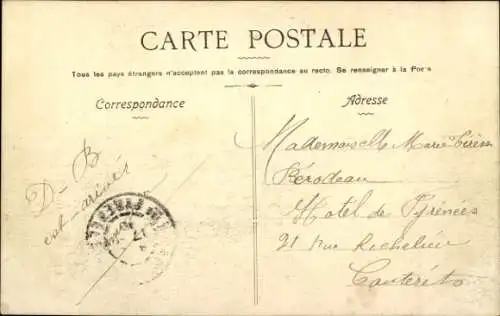 CARTE POSTALE
Tous les pays étrangers n'acceptent pas la correspondance au recto. Se renseigner à la Poste
Correspondance
Adresse
D-B
est-arrivés
Mademoiselle Marie
Hôtel de Pyrénées
21 Rue Richelieu
Cauterets